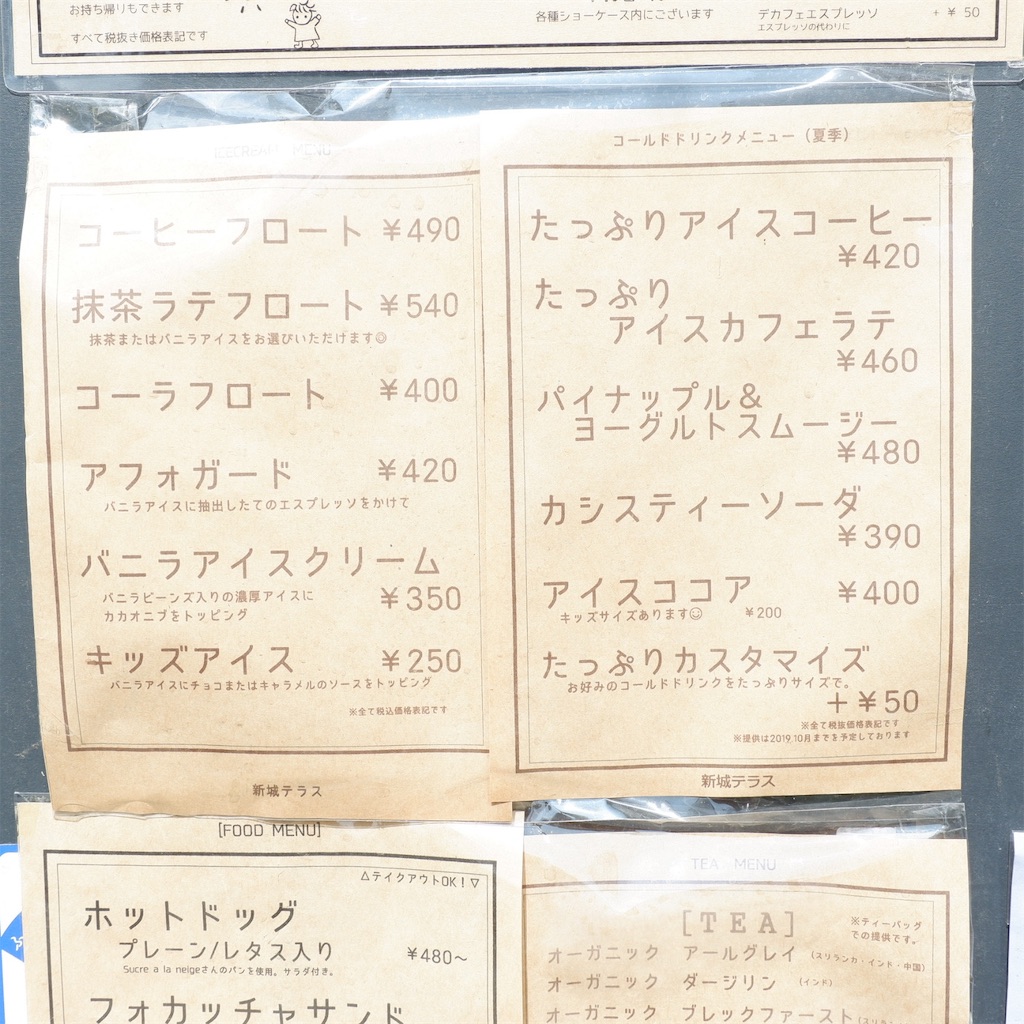 お持ち帰りもできます
すべて税抜き価格表記です
各種ショーケース内にございます
デカフェエスプレッソ
エスプレッソの代わりに
+ ¥ 50
ICECREAM MENU
コーヒーフロート ¥490
抹茶ラテフロート ¥540
抹茶またはバニラアイスをお選びいただけます☺
コーラフロート ¥400
アフォガード ¥420
バニラアイスに抽出したてのエスプレッソをかけて
バニラアイスクリーム
バニラビーンズ入りの濃厚アイスに
カカオニブをトッピング
¥350
キッズアイス ¥250
バニラアイスにチョコまたはキャラメルのソースをトッピング
※全て税込価格表記です
新城テラス
コールドドリンクメニュー（夏季）
たっぷりアイスコーヒー
¥420
たっぷり
アイスカフェラテ
¥460
パイナップル＆
ヨーグルトスムージー
¥480
カシスティーソーダ
¥390
アイスココア ¥400
キッズサイズあります☺ ¥200
たっぷりカスタマイズ
お好みのコールドドリンクをたっぷりサイズで。
＋¥50
※全て税抜価格表記です
※提供は2019,10月までを予定しております
新城テラス
[FOOD MENU]
△テイクアウトOK！▽
ホットドッグ
プレーン/レタス入り ¥480～
Sucre a la neigeさんのパンを使用。サラダ付き。
フォカッチャサンド
TEA MENU
[TEA]
※ティーバッグ
での提供です。
オーガニック アールグレイ (スリランカ・インド・中国)
オーガニック ダージリン (インド)
オーガニック ブレックファースト